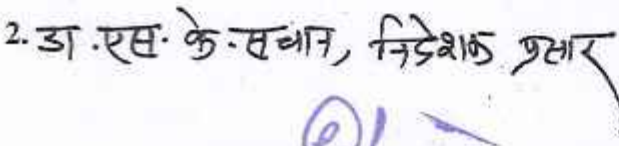 2. डा. एस. के. सचान, निदेशक प्रसार